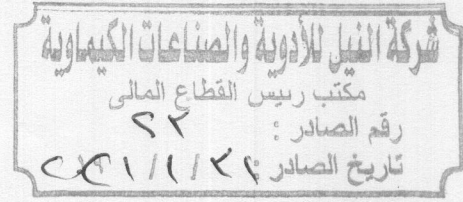 شركة النيل للأدوية والصناعات الكيماوية
مكتب رئيس القطاع المالى
رقم الصادر : ٢٣
تاريخ الصادر : ٣١ / ١ / ٢٠٢١